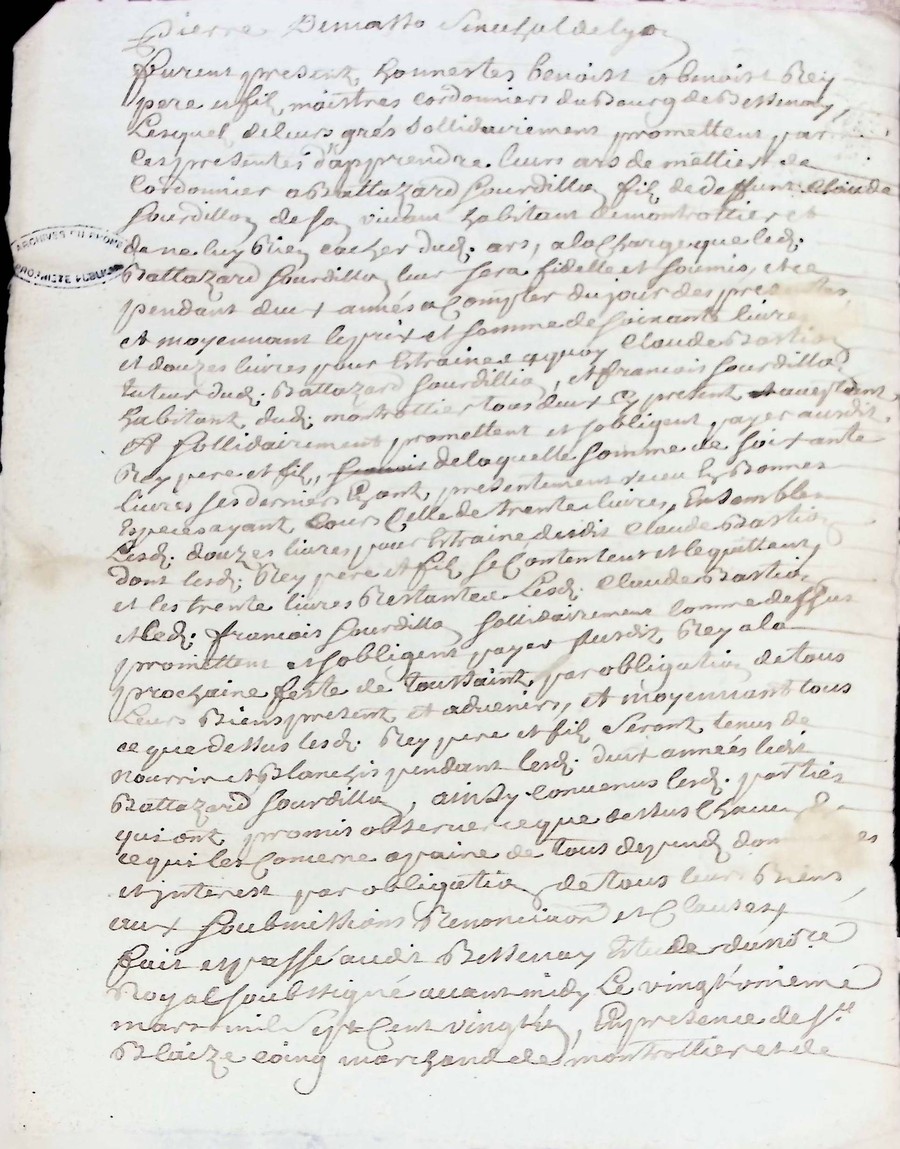 pierre Demasso Senechal de lyon
furent present honnestes benoist et benoist Rey
pere et fil maistres cordonniers du Bourg de Bessenay
Lesquel de leurs grés sollidairement promettent par
ces presentes d'apprendre leurs ars de mettier de
Cordonnier a Baltazard Gourdillion fil de deffunt Claude
Gourdillon de son vivant habitant de montrottier et
de ne luy Rien cacher dud. ars, a la Charge que led.
Baltazard Gourdillon leur sera fidelle et soumis, et ce
pendant deux années a Compter du jour des presentes
et moyennant le prix et somme de soixante livres
et douzes livres pour Estraines a quoy Claude Bastion
tuteur dud. Baltazard Gourdillion, et francois Gourdillon
habitant dud. montrottier tous deux Cy present
sollidairement promettent et sobligent payer ausdit
Rey pere et fil, de laquelle somme de soixante
livres ses derniers Ayant presentement receu En Bonnes
Especes ayant Cours Celle de trente livres, Ensembles
Lesd. douzes livres pour Estraine desdit Claude Bastion
dont lesd. Rey pere et fil se Contentent et le quittent
et les trente livres Restantes Lesd. Claude Bastion
et led. francois Gourdillon sollidairement Comme dessus
promettent et sobligent payer ausdit Rey a la
prochaine feste de toussaint par obligation de tous
Leurs Biens present et advenirs, et moyennant tous
ce que dessus lesd. Rey pere et fil Seront tenus de
nourrir et Blanchir pendant lesd. deux années ledit
Baltazard Gourdillon, ainsy Convenus lesd. parties
qui ont promis observer ce que dessus Chacun
ce qui les Concerne a paine de tous depend
et interest par obligation de tous leurs Biens
aux soubmissions Renonciaon et Clauses
fait et passé audit Bessenay Estude du no.re
Royal soubsigné avant midy Le vingt
mars mil Sept Cent vingt , En presence de s.r
Blaize Coing marchand de montrottier et de
ARCHIVES DU RHONE